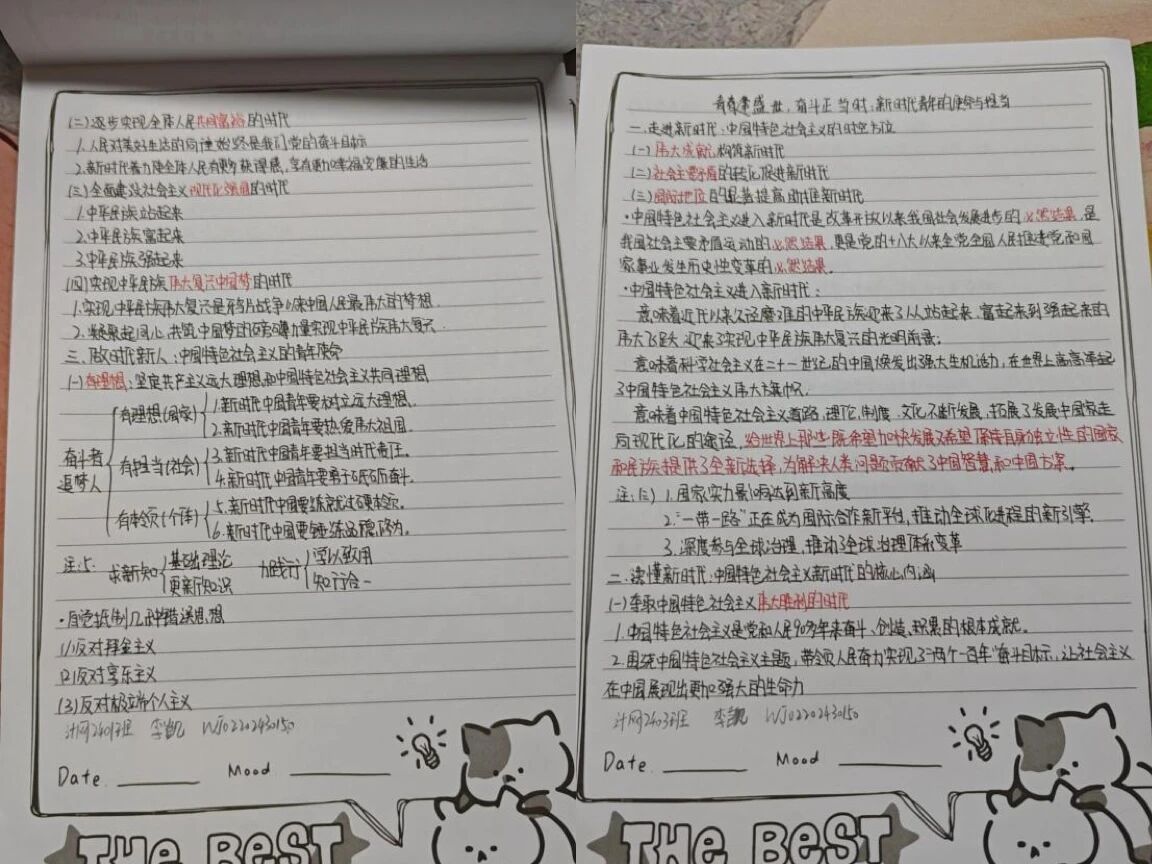 (二)逐步实现全体人民共同富裕的时代
1.人民对美好生活的向往始终是我们党的奋斗目标
2.新时代着力使全体人民有更多获得感,享有更加幸福安康的生活
(三)全面建设社会主义现代化强国的时代
1.中华民族站起来
2.中华民族富起来
3.中华民族强起来
(四)实现中华民族伟大复兴中国梦的时代
1.实现中华民族伟大复兴是鸦片战争以来中国人民最伟大的梦想.
2.凝聚起同心共筑中国梦的磅礴力量实现中华民族伟大复兴.
三.做时代新人:中国特色社会主义的青年使命
(一)有理想:坚定共产主义远大理想和中国特色社会主义共同理想
奋斗者
追梦人
有理想(国家)
1.新时代中国青年要树立远大理想.
2.新时代中国青年要热爱伟大祖国.
有担当(社会)
3.新时代中国青年要担当时代责任.
4.新时代中国青年要勇于砥砺奋斗.
有本领(个体)
5.新时代中国要练就过硬本领.
6.新时代中国要锤炼品德修为.
注:5.
求新知
基础理论
更新知识
力践行
学以致用
知行合一
·自觉抵制几种错误思想
(1)反对拜金主义
(2)反对享乐主义
(3)反对极端个人主义
李凯 WJ02202430150
Date
Mood
THE BEST
青春逢盛世,奋斗正当时:新时代青年的使命与担当
一.走进新时代:中国特色社会主义的时空方位
(一)伟大成就构筑新时代
(二)社会主要矛盾的转化促进新时代
(三)国际地位的显著提高助推新时代
·中国特色社会主义进入新时代是改革开放以来我国社会发展进步的必然结果,是
我国社会主要矛盾运动的必然结果,更是党的十八大以来全党全国人民推进党和国
家事业发生历史性变革的必然结果.
·中国特色社会主义进入新时代:
意味着近代以来久经磨难的中华民族迎来了从站起来、富起来到强起来的
伟大飞跃,迎来了实现中华民族伟大复兴的光明前景;
意味着科学社会主义在二十一世纪的中国焕发出强大生机活力,在世界上高高举起
了中国特色社会主义伟大旗帜.
意味着中国特色社会主义道路,理论,制度,文化不断发展,拓展了发展中国家走
向现代化的途径,给世界上那些既希望加快发展又希望保持自身独立性的国家
和民族提供了全新选择,为解决人类问题贡献了中国智慧和中国方案.
注:(三)1.国家实力影响达到新高度
2.“一带一路”正在成为国际合作新平台,推动全球化进程的新引擎.
3.深度参与全球治理,推动了全球治理体系变革
二.读懂新时代:中国特色社会主义新时代的核心内涵
(一)夺取中国特色社会主义伟大胜利的时代
1.中国特色社会主义是党和人民90多年来奋斗、创造、积累的根本成就.
2.围绕中国特色社会主义主题,带领人民奋力实现了“两个一百年”奋斗目标,让社会主义
在中国展现出更加强大的生命力
计网2403班 李凯 WJ02202430150
Date
Mood
THE BEST